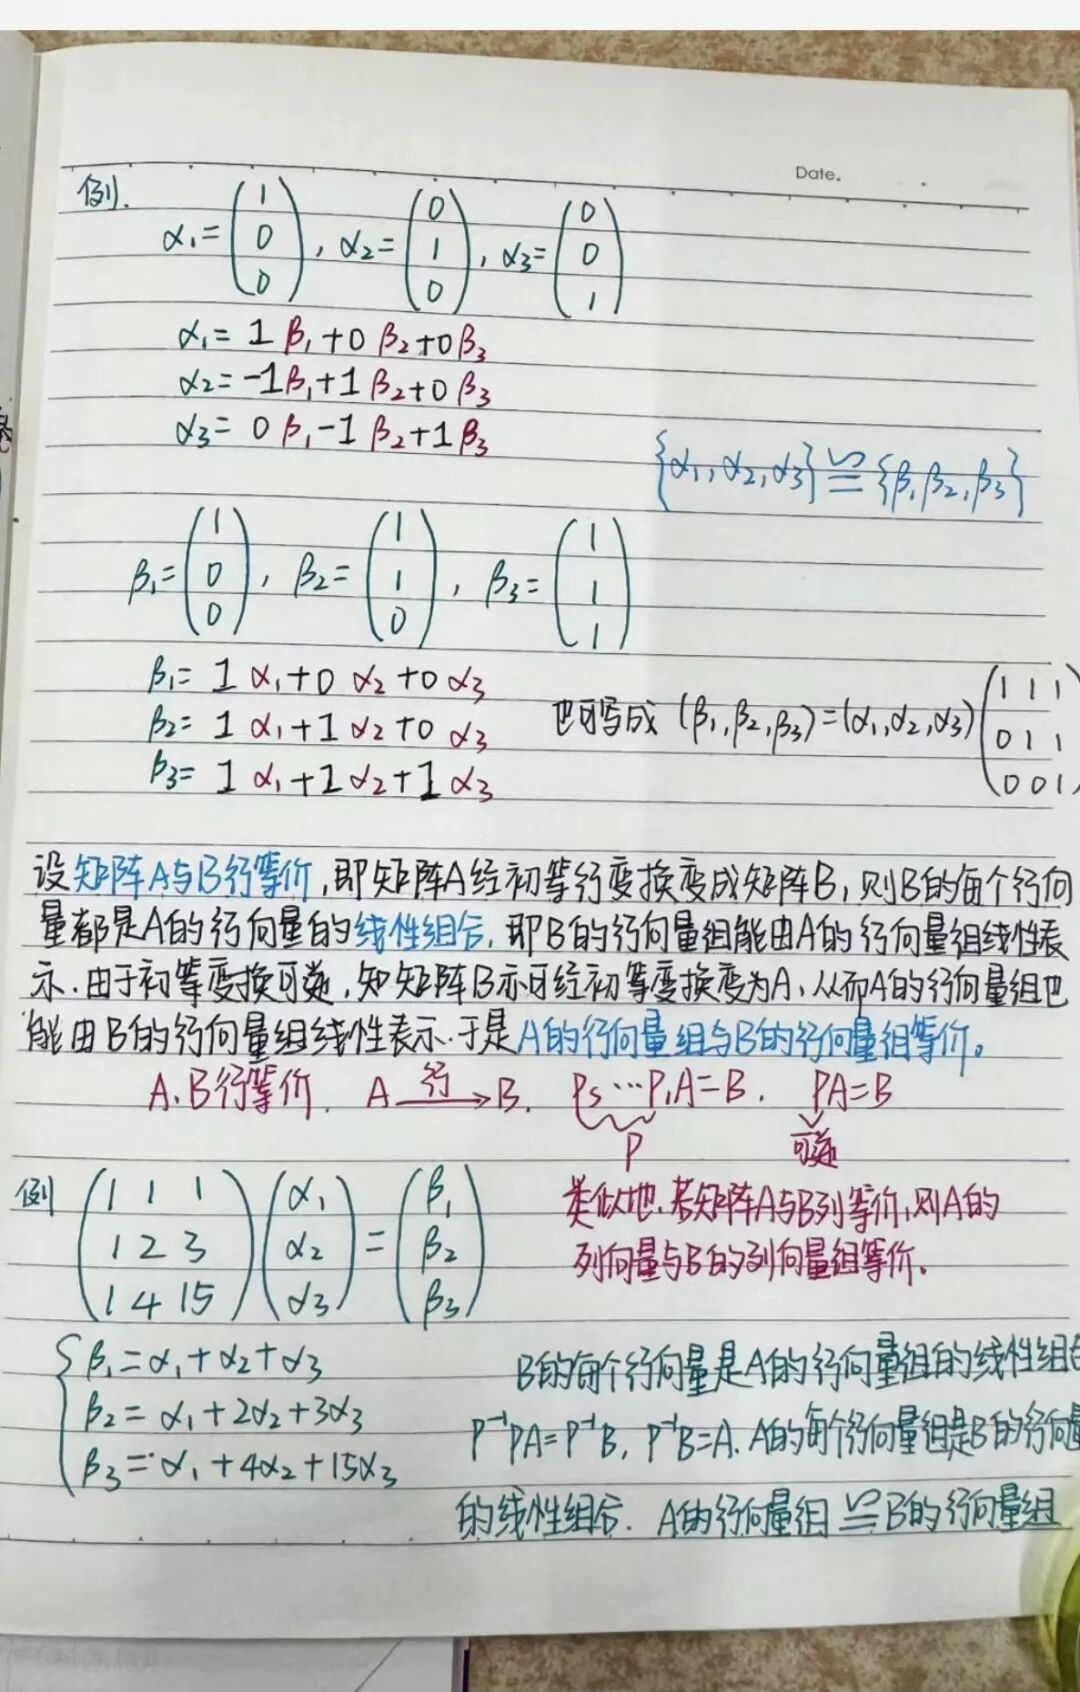 Date.
例.
α₁=(1 0 0), α₂=(0 1 0), α₃=(0 0 1)
α₁= 1 β₁+0 β₂+0β₃
α₂=-1β₁+1 β₂+0 β₃
α₃= 0 β₁-1 β₂+1β₃
{α₁,α₂,α₃}≌{β₁,β₂,β₃}
β₁=(1 0 0), β₂=(1 1 0), β₃=(1 1 1)
β₁= 1 α₁+0 α₂+0 α₃
β₂= 1 α₁+1 α₂+0 α₃
β₃= 1 α₁+1 α₂+1 α₃
也可写成 (β₁,β₂,β₃)=(α₁,α₂,α₃)(1 1 1
0 1 1
0 0 1)
设矩阵A与B行等价,即矩阵A经初等行变换变成矩阵B,则B的每个行向
量都是A的行向量的线性组合,即B的行向量组能由A的行向量组线性表
示.由于初等变换可逆,知矩阵B亦可经初等变换变为A,从而A的行向量组也
能由B的行向量组线性表示.于是A的行向量组与B的行向量组等价。
A.B行等价. A 行→ B. Ps…P₁A=B. PA=B
P 可逆
例 (1 1 1
1 2 3
1 4 15)(α₁ α₂ α₃)=(β₁ β₂ β₃)
类似地,若矩阵A与B列等价,则A的
列向量与B的列向量组等价.
{β₁=α₁+α₂+α₃
β₂=α₁+2α₂+3α₃
β₃=α₁+4α₂+15α₃
B的每个行向量是A的行向量组的线性组合
P⁻¹PA=P⁻¹B, P⁻¹B=A. A的每个行向量组是B的行向量
的线性组合. A的行向量组≌B的行向量组